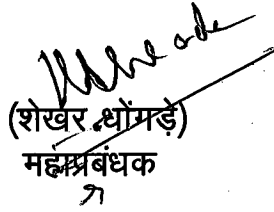 (शेखर धोंगड़े)
महाप्रबंधक